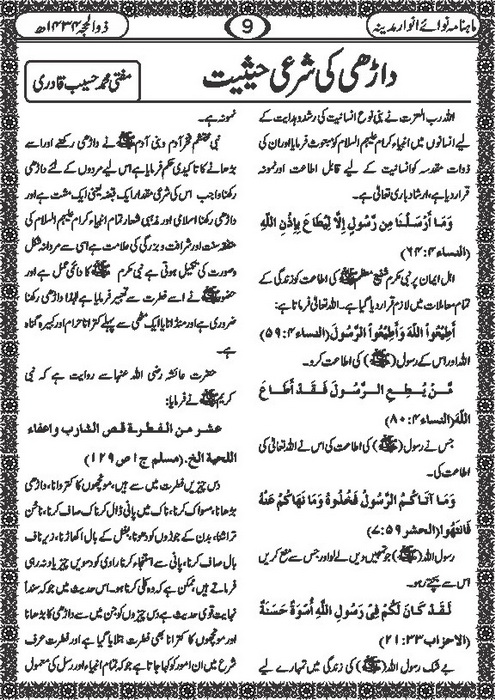 ماہنامہ نوائے انوار مدینہ
9
ذوالحجہ ۱۴۳۴ھ
داڑھی کی شرعی حیثیت
مفتی محمد حسیب قادری
اللہ رب العزت نے بنی نوع انسانیت کی رشد و ہدایت کے
لیے انسانوں میں انبیاء کرام علیہم السلام کو مبعوث فرمایا اور ان کی
ذوات مقدسہ کو انسانیت کے لیے قابل اطاعت اور نمونہ
قرار دیا ہے، ارشاد باری تعالیٰ ہے۔
وَمَا أَرْسَلْنَا مِن رَّسُولٍ إِلَّا لِيُطَاعَ بِإِذْنِ اللّٰهِ
(النساء ۴:۶۴)
اہل ایمان پر نبی مکرم شفیع معظم ﷺ کی اطاعت کو زندگی کے
تمام معاملات میں لازم قرار دیا گیا ہے۔ اللہ تعالیٰ فرماتا ہے:
أَطِيْعُوا اللّٰهَ وَأَطِيْعُوا الرَّسُوْلَ (النساء ۴:۵۹)
اللہ اور اس کے رسول (ﷺ) کی اطاعت کرو۔
مَّنْ يُطِعِ الرَّسُوْلَ فَقَدْ أَطَاعَ
اللّٰهَ (النساء ۴:۸۰)
جس نے رسول (ﷺ) کی اطاعت کی اس نے اللہ تعالیٰ کی
اطاعت کی۔
وَمَا آتَاكُمُ الرَّسُوْلُ فَخُذُوْهُ وَمَا نَهَاكُمْ عَنْهُ
فَانتَهُوا (الحشر ۵۹:۷)
رسول اللہ (ﷺ) جو تمہیں دیں لے لو اور جس سے منع کریں
اس سے بچتے رہو۔
لَقَدْ كَانَ لَكُمْ فِيْ رَسُوْلِ اللّٰهِ أُسْوَةٌ حَسَنَةٌ
(الاحزاب ۳۳:۲۱)
بے شک رسول اللہ (ﷺ) کی زندگی میں تمہارے لیے
نمونہ ہے۔
نبی محتشم فخر آدم و بنی آدم ﷺ نے داڑھی رکھنے اور اسے
بڑھانے کا تاکیدی حکم فرمایا ہے اس لیے مردوں کے لئے داڑھی
رکھنا واجب اس کی شرعی مقدار ایک قبضہ یعنی ایک مشت ہے اور
داڑھی رکھنا اسلامی اور مذہبی شعار تمام انبیاء کرام علیہم السلام کی
متفقہ سنت اور شرافت و بزرگی کی علامت ہے اسی سے مردانہ شکل
و صورت کی تکمیل ہوتی ہے نبی مکرم ﷺ کا دائمی عمل ہے اور
حضور ﷺ نے اسے فطرت سے تعبیر فرمایا ہے لہٰذا داڑھی رکھنا
ضروری ہے اور منڈانا یا ایک مٹھی سے پہلے کترانا حرام اور کبیرہ گناہ
ہے۔
حضرت عائشہ رضی اللہ عنہا سے روایت ہے کہ نبی
کریم ﷺ نے فرمایا:
عشر من الفطرة قص الشارب واعفاء
اللحية الخ۔ (مسلم ج۱ ص ۱۲۹)
دس چیزیں فطرت میں سے ہیں، مونچھوں کا کتروانا، داڑھی
بڑھانا، مسواک کرنا، ناک میں پانی ڈال کر ناک صاف کرنا، ناخن
تراشنا، بدن کے جوڑوں کو دھونا، بغل کے بال اکھاڑنا، زیر ناف
بال صاف کرنا، پانی سے استنجاء کرنا، راوی کو دسویں چیز یاد نہ رہی
فرماتے ہیں، ممکن ہے کہ وہ کلی کرنا ہو۔ اس حدیث میں جو کہ سنداً
نہایت قوی حدیث ہے دس چیزوں کو جن میں سے داڑھی کا بڑھانا
اور مونچھوں کا کترانا بھی فطرت بتلایا گیا ہے اور فطرت عرف
شرع میں ان امور کو کہا جاتا ہے جو کہ تمام انبیاء اور رسل کی معمول